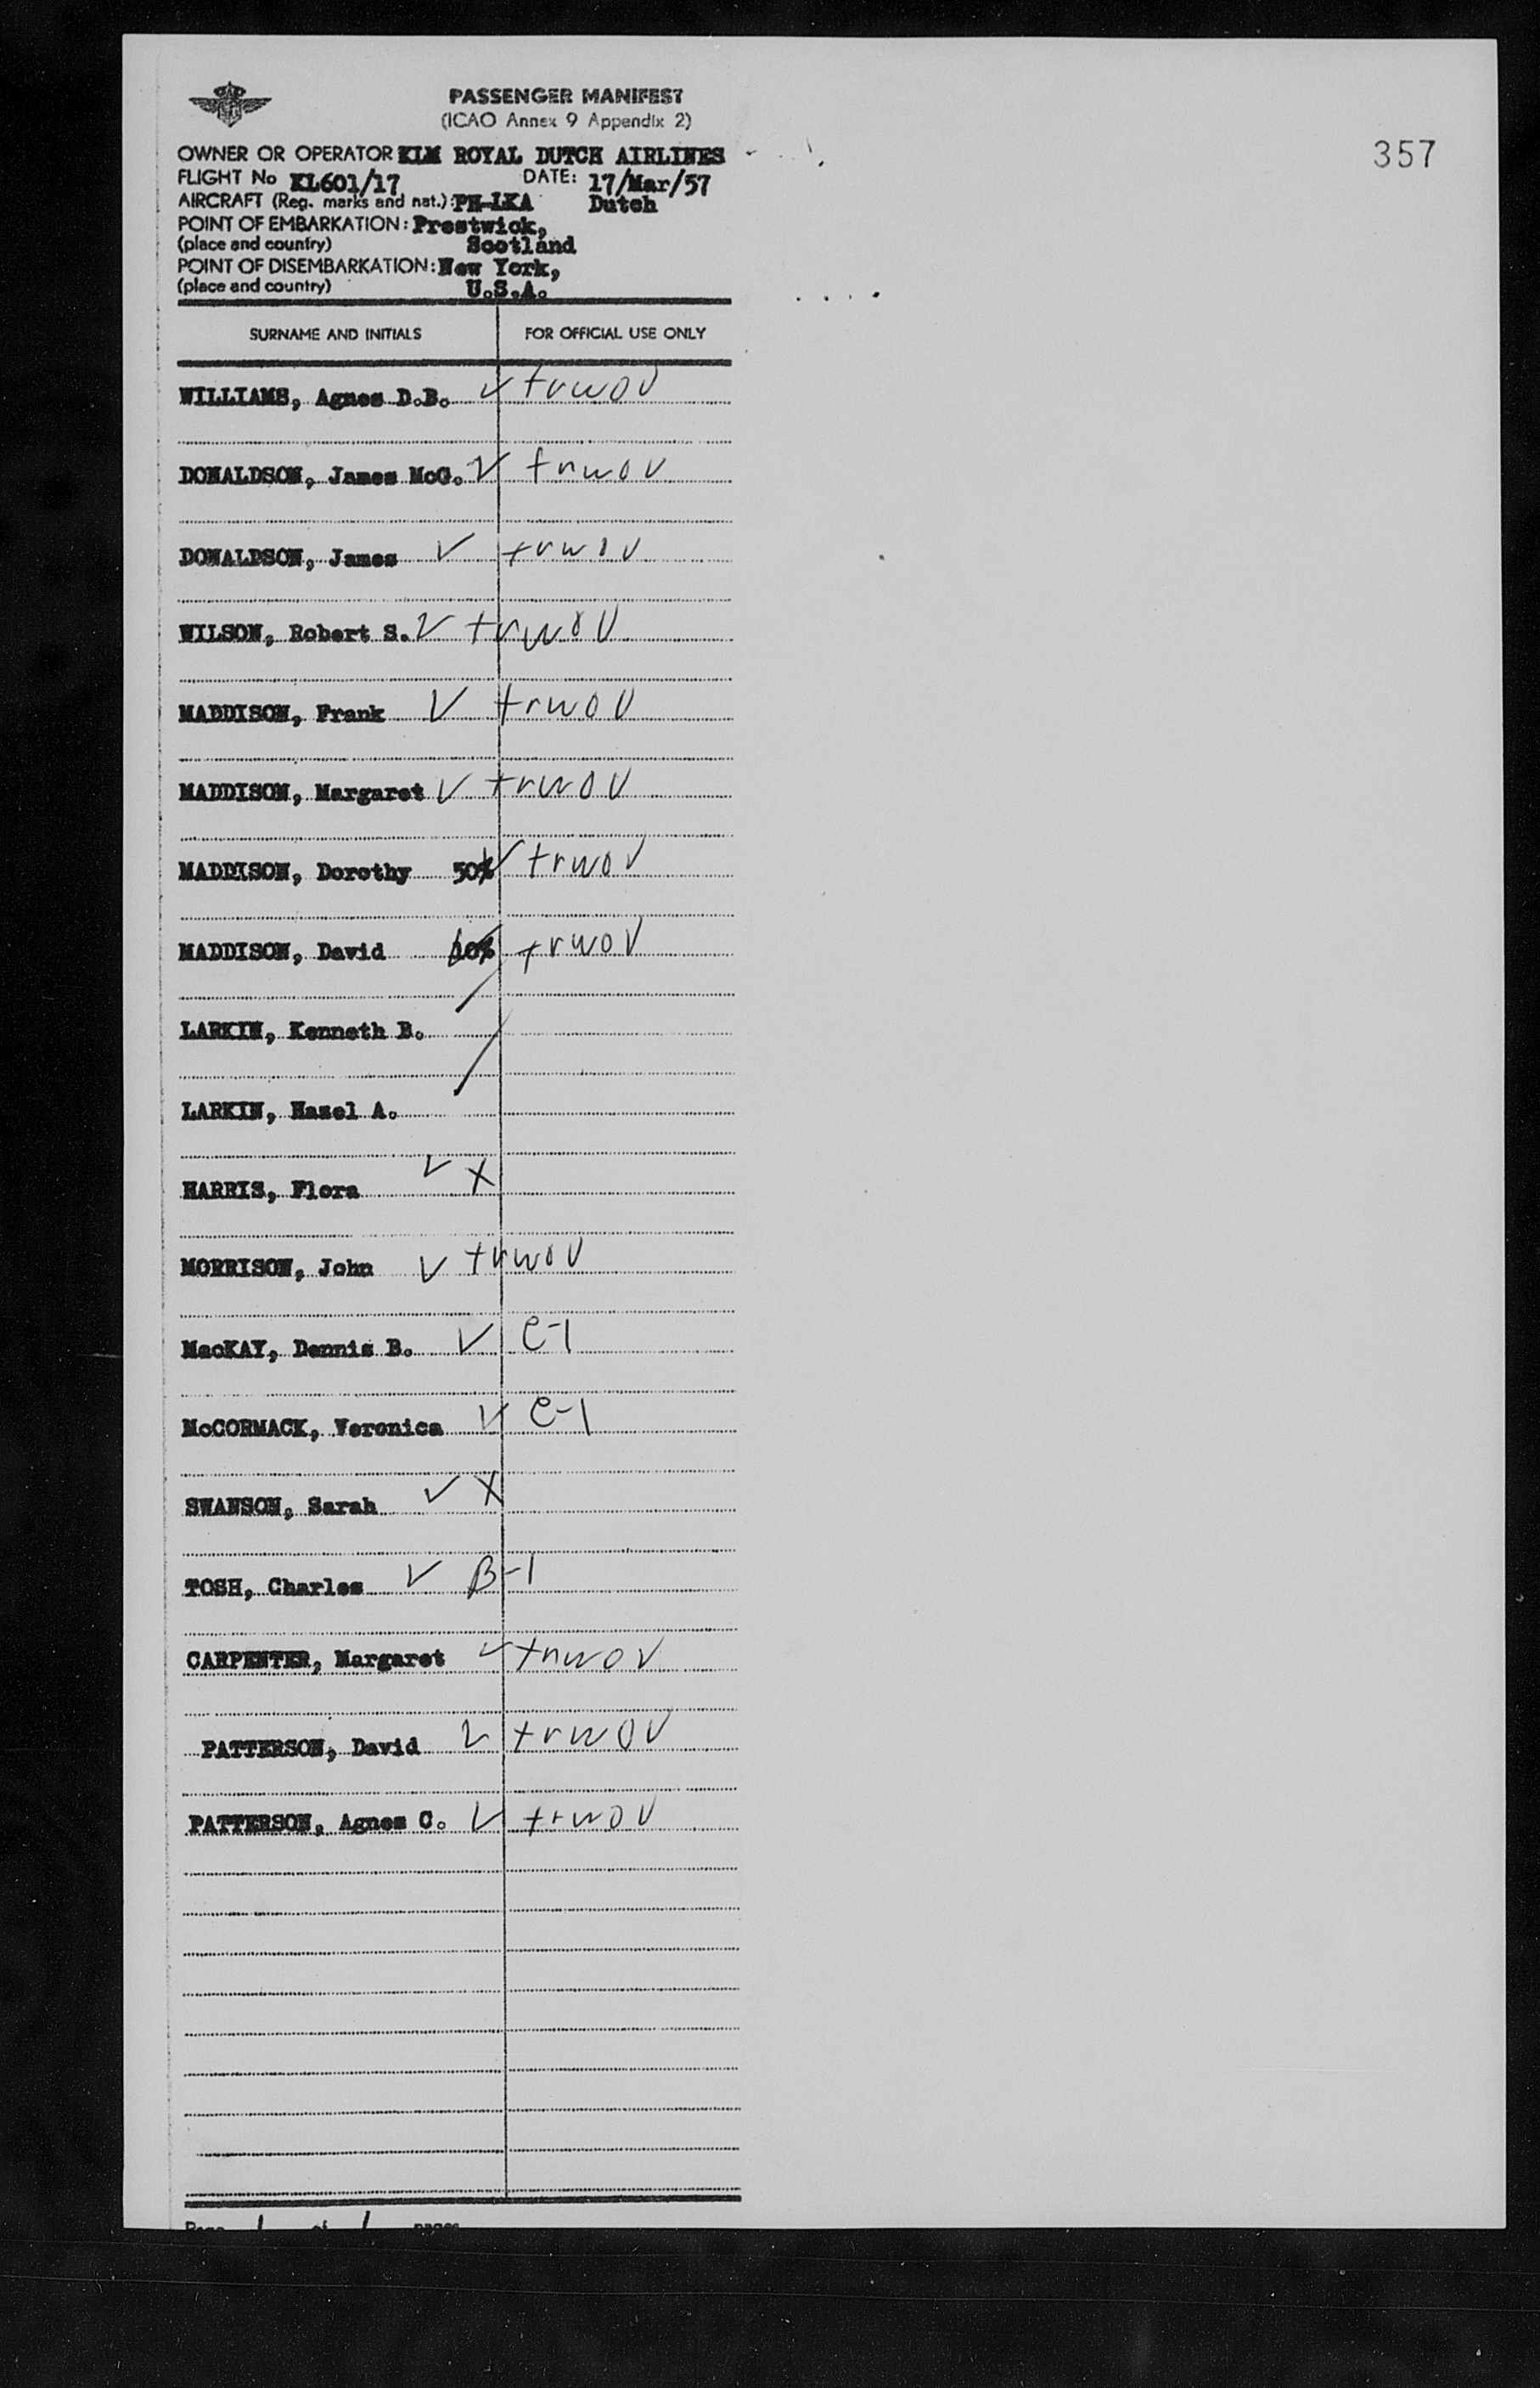 PASSENGER MANIFEST
(ICAO Annex 9 Appendix 2)
357
OWNER OR OPERATOR KLM ROYAL DUTCH AIRLINES
FLIGHT No KL601/17 DATE: 17/Mar/57
AIRCRAFT (Reg. marks and nat.): PH-LKA Dutch
POINT OF EMBARKATION: Prestwick,
(place and country) Scotland
POINT OF DISEMBARKATION: New York,
(place and country) U.S.A.
SURNAME AND INITIALS FOR OFFICIAL USE ONLY
WILLIAMS, Agnes D.B. ✓ trwov
DONALDSON, James McG. ✓ trwov
DONALDSON, James ✓ trwov
WILSON, Robert S. ✓ trwov
MADDISON, Frank ✓ trwov
MADDISON, Margaret ✓ trwov
MADDISON, Dorothy 50% ✓ trwov
MADDISON, David 10% trwov
LARKIN, Kenneth B.
LARKIN, Hazel A.
HARRIS, Flora ✓ X
MORRISON, John ✓ trwov
MacKAY, Dennis B. ✓ C-1
McCORMACK, Veronica ✓ C-1
SWANSON, Sarah ✓ X
TOSH, Charles ✓ B-1
CARPENTER, Margaret ✓ trwov
PATTERSON, David ✓ trwov
PATTERSON, Agnes C. ✓ trwov
Page 1 of 1 pages